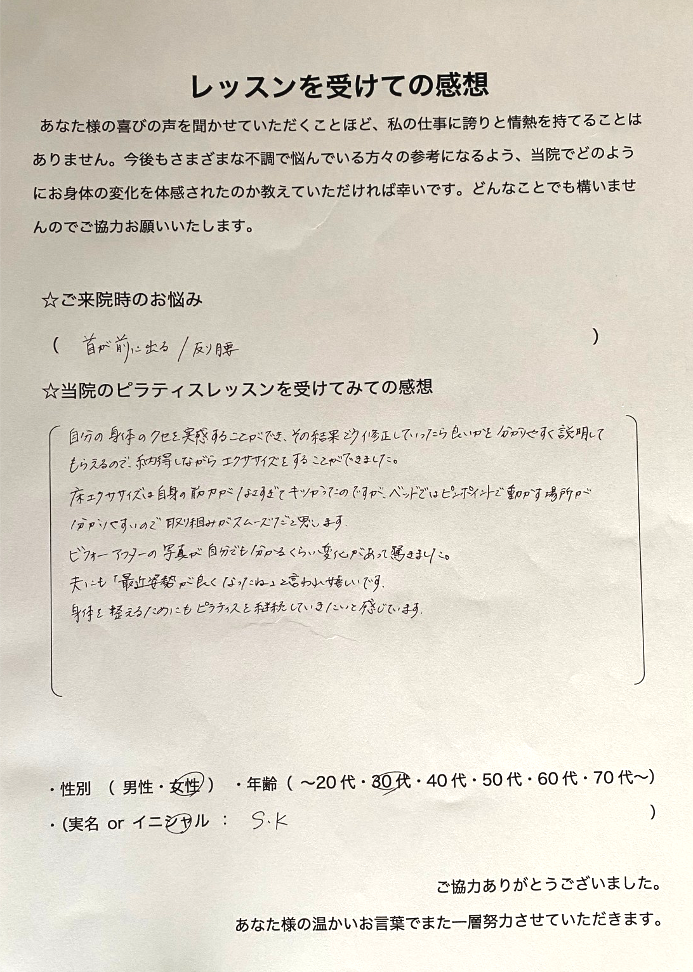 レッスンを受けての感想
あなた様の喜びの声を聞かせていただくことほど、私の仕事に誇りと情熱を持てることは
ありません。今後もさまざまな不調で悩んでいる方々の参考になるよう、当院でどのよう
にお身体の変化を体感されたのか教えていただければ幸いです。どんなことでも構いませ
んのでご協力お願いいたします。
☆ご来院時のお悩み
( 首が前に出る / 反り腰 )
☆当院のピラティスレッスンを受けてみての感想
自分の身体のクセを実感することができ、その結果どう修正していったら良いかを分かりやすく説明して
もらえるので、納得しながらエクササイズをすることができました。
床エクササイズは自身の筋力がなさすぎてキツかったのですが、ベッドではピンポイントで動かす場所が
分かりやすいので取り組みがスムーズだと思います
ビフォーアフターの写真が自分でも分かるくらい変化があって驚きました。
夫にも「最近姿勢が良くなったね」と言われ嬉しいです.
身体を整えるためにもピラティスを継続していきたいと感じています.
・性別 ( 男性・女性 ) ・年齢 ( ～20代・30代・40代・50代・60代・70代～)
・(実名 or イニシャル : S.K )
ご協力ありがとうございました。
あなた様の温かいお言葉でまた一層努力させていただきます。